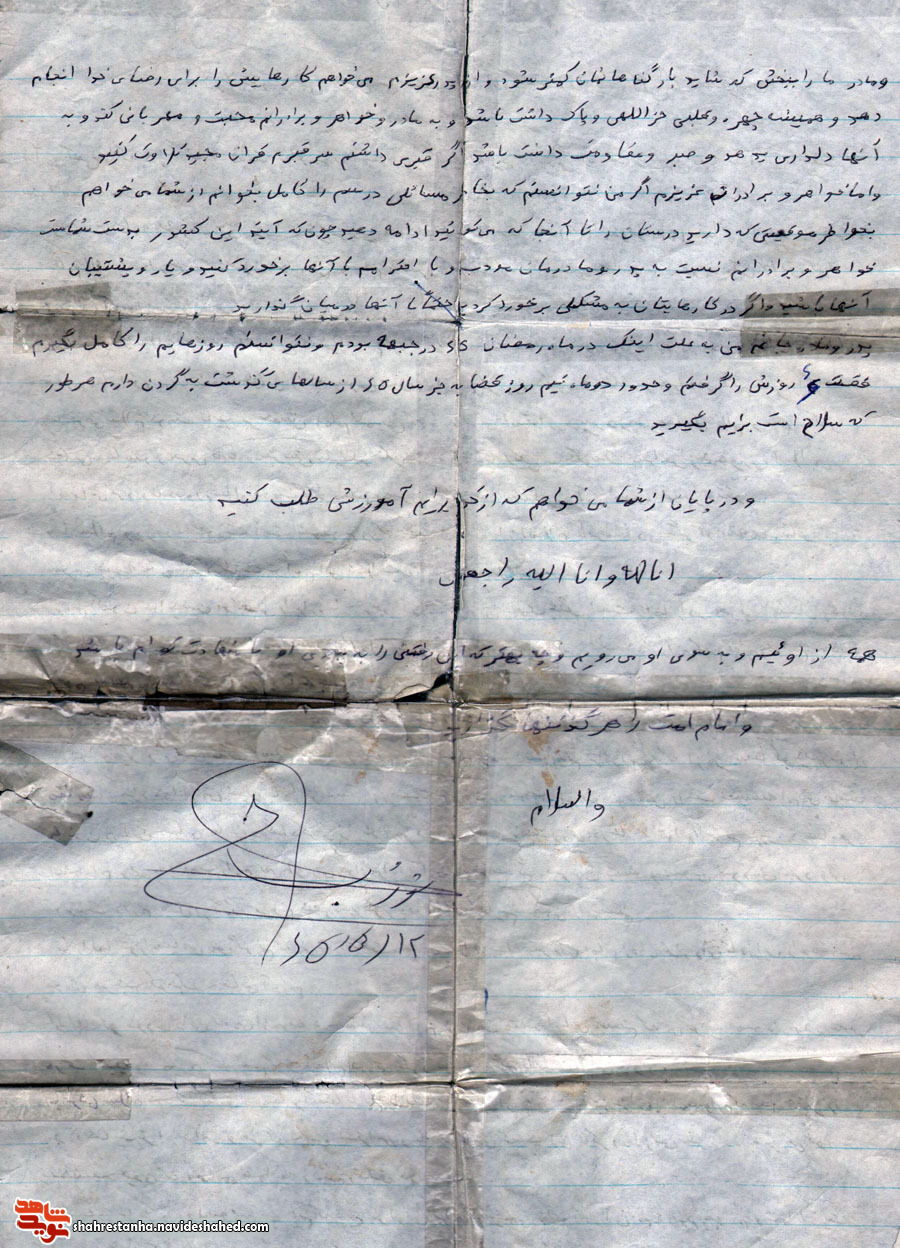 ومادر ما را ببخش که شاید بار گناهانمان کمتر شود و از پدر عزیزم می‌خواهم کارهایش را برای رضای خدا انجام
دهد و همیشه چهره و قلبی حزاللهی و پاک داشت باشد و به مادر و خواهر و برادرانم محبت و مهربانی کند و به
آنها دلداری بدهد و صبر و مقاومت داشت باشد اگر قبری داشتم سر قبرم قران مجید تلاوت کنید
واما خواهر و برادران عزیزم اگر من نتوانستم که بخاطر مسائلی درسم را کامل بخوانم از شما می خواهم
بخواطر موقعیتی که دارید درستان را تا آنجا که می‌توانید ادامه دهید چون که آیند این کشور بدست شماست
خواهر و برادرانم نسبت به پدر و مادرمان مودب و با احترام با آنها برخورد کنید و یار و پشتیبان
آنها باشید واگر در کارهایتان به مشکلی برخورد کردید حتماً با آنها درمیان گذارید
پدر ومادر جانم من به علت اینک در ماه رمضان 65 در جبهه بودم و نتوانستم روزهایم را کامل بگیرم
روزش را گرفتم و حدود دوماه نیم روز قضا به جز سال 65 از سالهای گذشت به گردن دارم هرطور
که سلاح است برایم بگیرید
و در پایان از شما می خواهم که از خدا برایم آموزرش طلب کنید
انا لله و انا الیه راجعون
همه از اوئیم و به سوی او می رویم و چه بهتر که این رفتن را به سوی او با شهادت توام باشد
و امام امت را هرگز تنها نگذارید
والسلام
65/5/12
نوید شاهد
shahrestanha.navideshahed.com